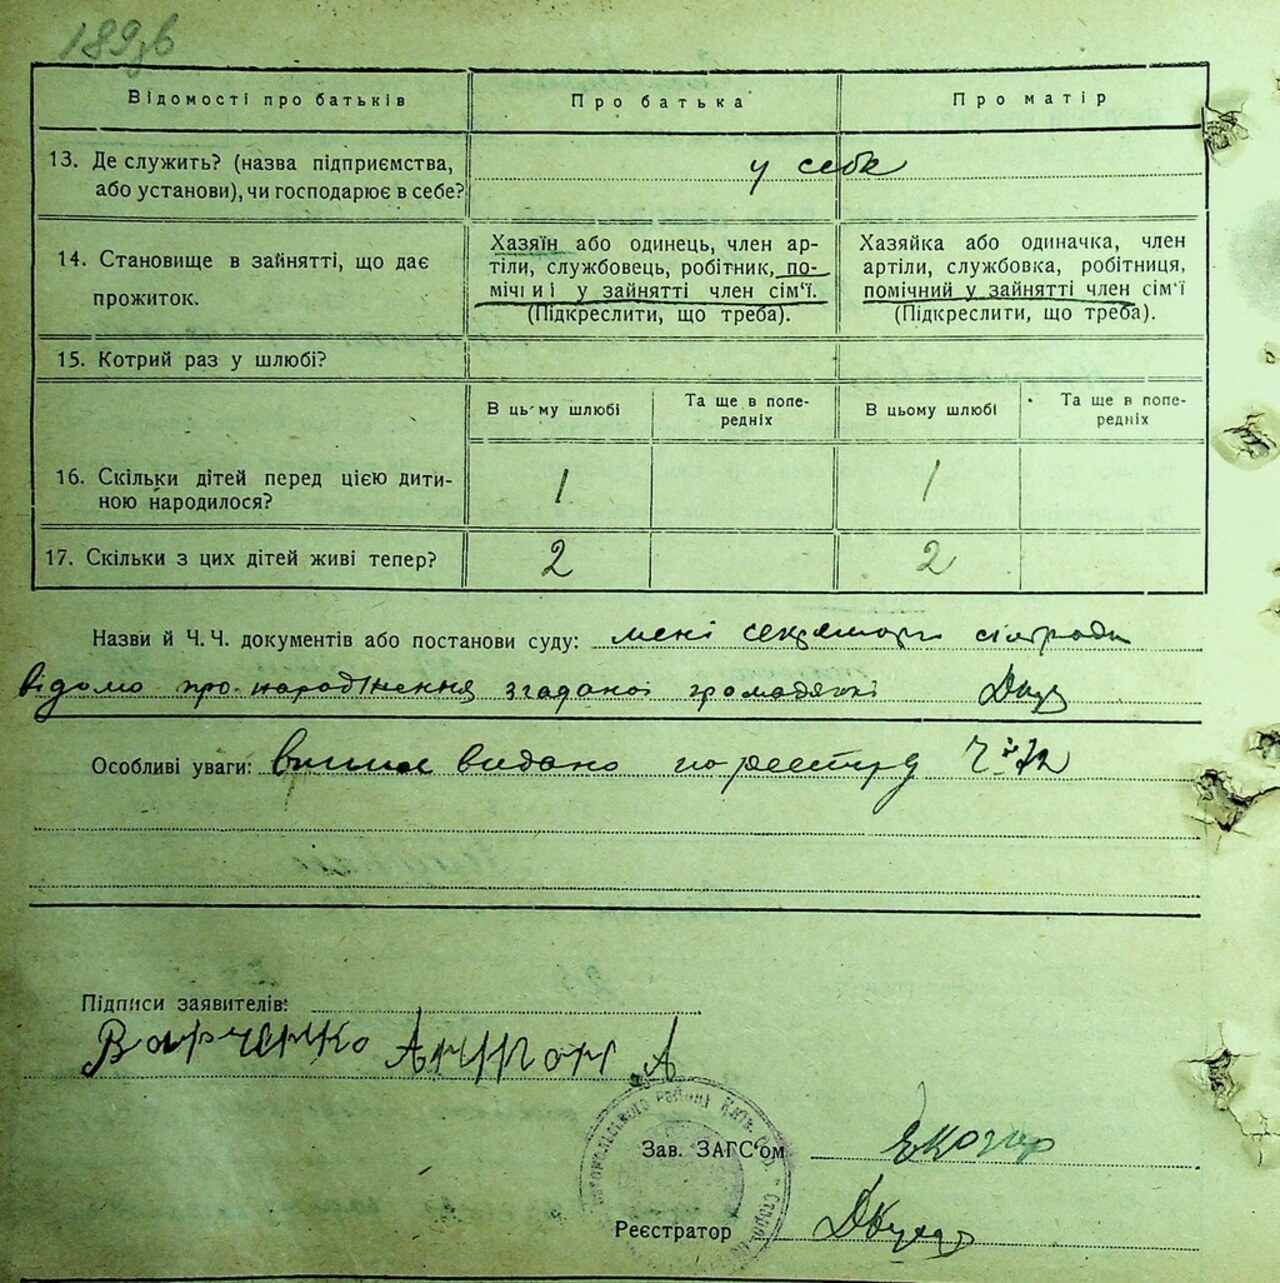 189зв
Відомості про батьків
Про батька
Про матір
13. Де служить? (назва підприємства,
або установи), чи господарює в себе?
у себе
14. Становище в зайнятті, що дає
прожиток.
Хазяїн або одинець, член ар-
тіли, службовець, робітник, по-
мічний у зайнятті член сім'ї.
(Підкреслити, що треба).
Хазяйка або одиначка, член
артіли, службовка, робітниця,
помічний у зайнятті член сім'ї
(Підкреслити, що треба).
15. Котрий раз у шлюбі?
В цьому шлюбі
Та ще в попе-
редніх
В цьому шлюбі
Та ще в попе-
редніх
16. Скільки дітей перед цією дити-
ною народилося?
1
1
17. Скільки з цих дітей живі тепер?
2
2
Назви й Ч. Ч. документів або постанови суду: мені секретарю сільради
відомо про народження згаданої громадянкі
Особливі уваги: видано по реєстру Ч 72
Підписи заявителів:
Варченко Антон А
Зав. ЗАГС'ом
Реєстратор